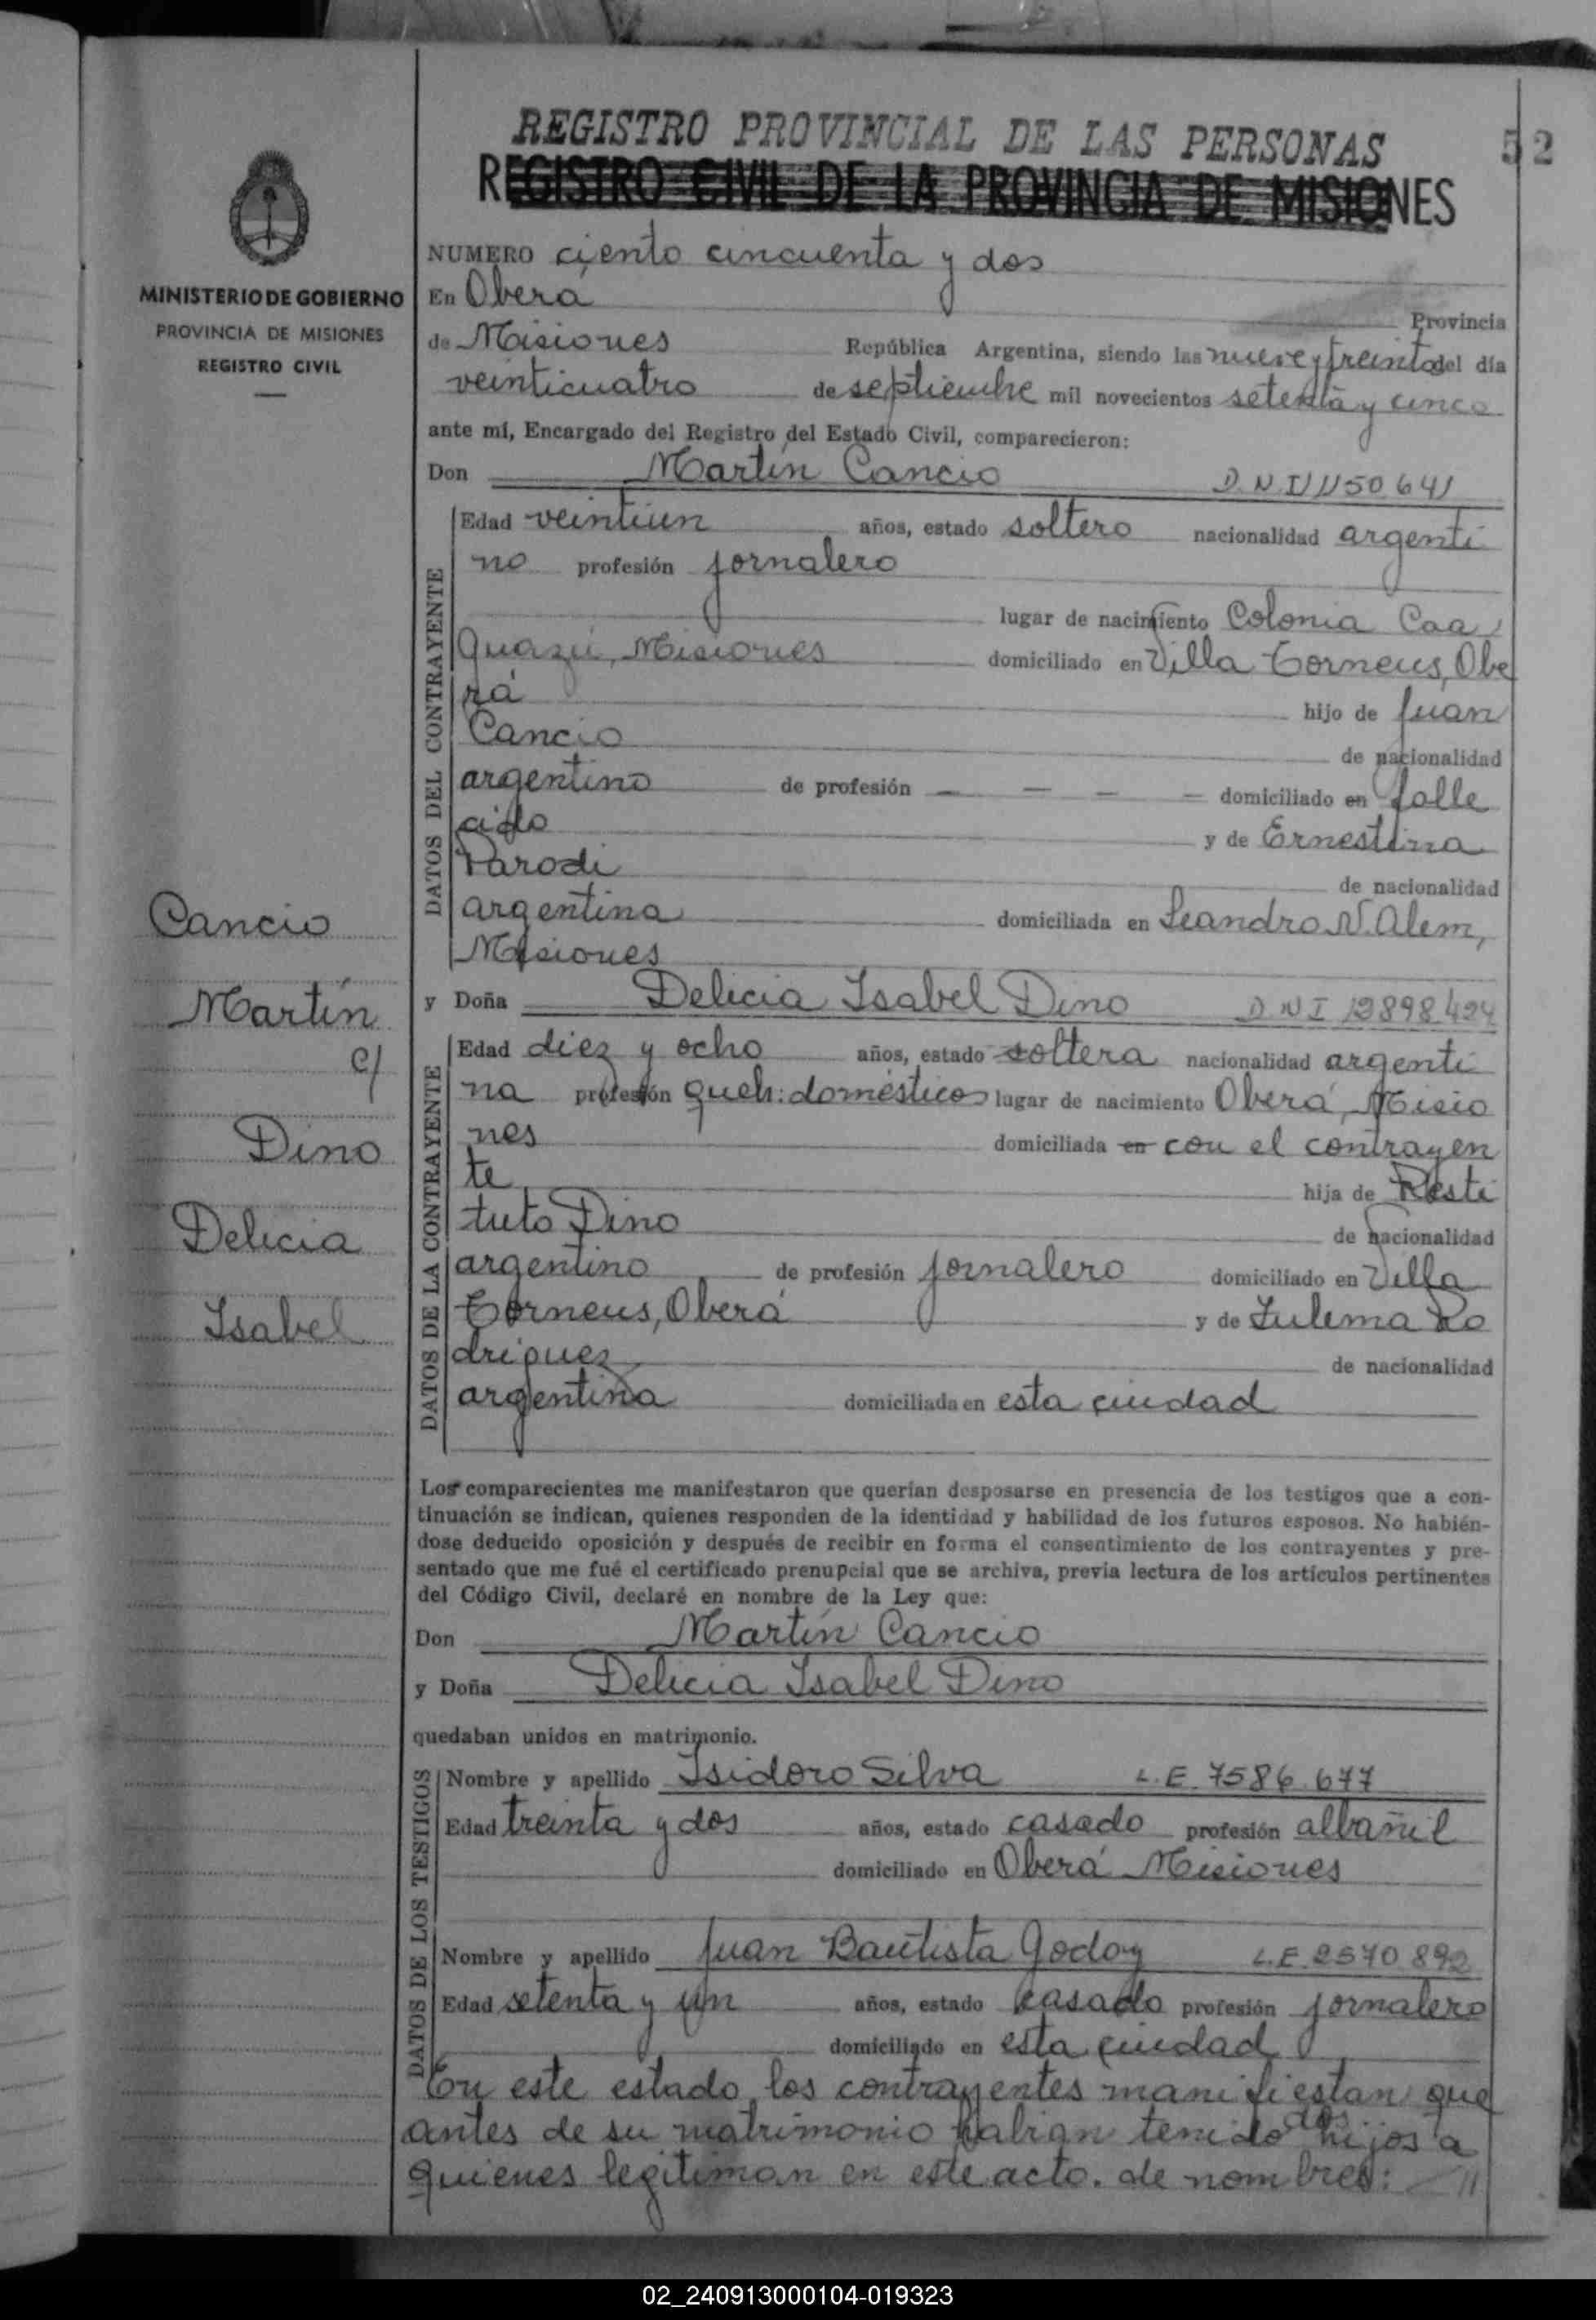 REGISTRO PROVINCIAL DE LAS PERSONAS
52
REGISTRO CIVIL DE LA PROVINCIA DE MISIONES
MINISTERIO DE GOBIERNO
PROVINCIA DE MISIONES
REGISTRO CIVIL
NUMERO ciento cincuenta y dos
En Oberá Provincia
de Misiones República Argentina, siendo las nueve y treinta del día
veinticuatro de septiembre mil novecientos setenta y cinco
ante mí, Encargado del Registro del Estado Civil, comparecieron:
Don Martín Cancio D.N.I.
DATOS DEL CONTRAYENTE
Edad veintiun años, estado soltero nacionalidad argenti
no profesión jornalero
lugar de nacimiento Colonia Caa
Guazú, Misiones domiciliado en Villa Torneus, Obe
rá hijo de Juan
Cancio de nacionalidad
argentino de profesión — — — — domiciliado en falle
cido y de Ernestina
Parodi de nacionalidad
argentina domiciliada en Leandro N. Alem,
Misiones
Cancio
Martín
c/
Dino
Delicia
Isabel
y Doña Delicia Isabel Dino D N I 12898424
DATOS DE LA CONTRAYENTE
Edad diez y ocho años, estado soltera nacionalidad argenti
na profesión queh: domésticos lugar de nacimiento Oberá, Misio
nes domiciliada en con el contrayen
te hija de Resti
tuto Dino de nacionalidad
argentino de profesión jornalero domiciliado en Villa
Torneus, Oberá y de Zulema Ro
driguez de nacionalidad
argentina domiciliada en esta ciudad
Los comparecientes me manifestaron que querían desposarse en presencia de los testigos que a con-
tinuación se indican, quienes responden de la identidad y habilidad de los futuros esposos. No habién-
dose deducido oposición y después de recibir en forma el consentimiento de los contrayentes y pre-
sentado que me fué el certificado prenupcial que se archiva, previa lectura de los artículos pertinentes
del Código Civil, declaré en nombre de la Ley que:
Don Martín Cancio
y Doña Delicia Isabel Dino
quedaban unidos en matrimonio.
DATOS DE LOS TESTIGOS
Nombre y apellido Isidoro Silva L.E. 7586.677
Edad treinta y dos años, estado casado profesión albañil
domiciliado en Oberá Misiones
Nombre y apellido Juan Bautista Godoy L.E. 2570.892
Edad setenta y un años, estado casado profesión jornalero
domiciliado en esta ciudad
En este estado los contrayentes manifiestan que
antes de su matrimonio habian tenido dos hijos a
quienes legitiman en este acto. de nombres: — //
02_240913000104-019323